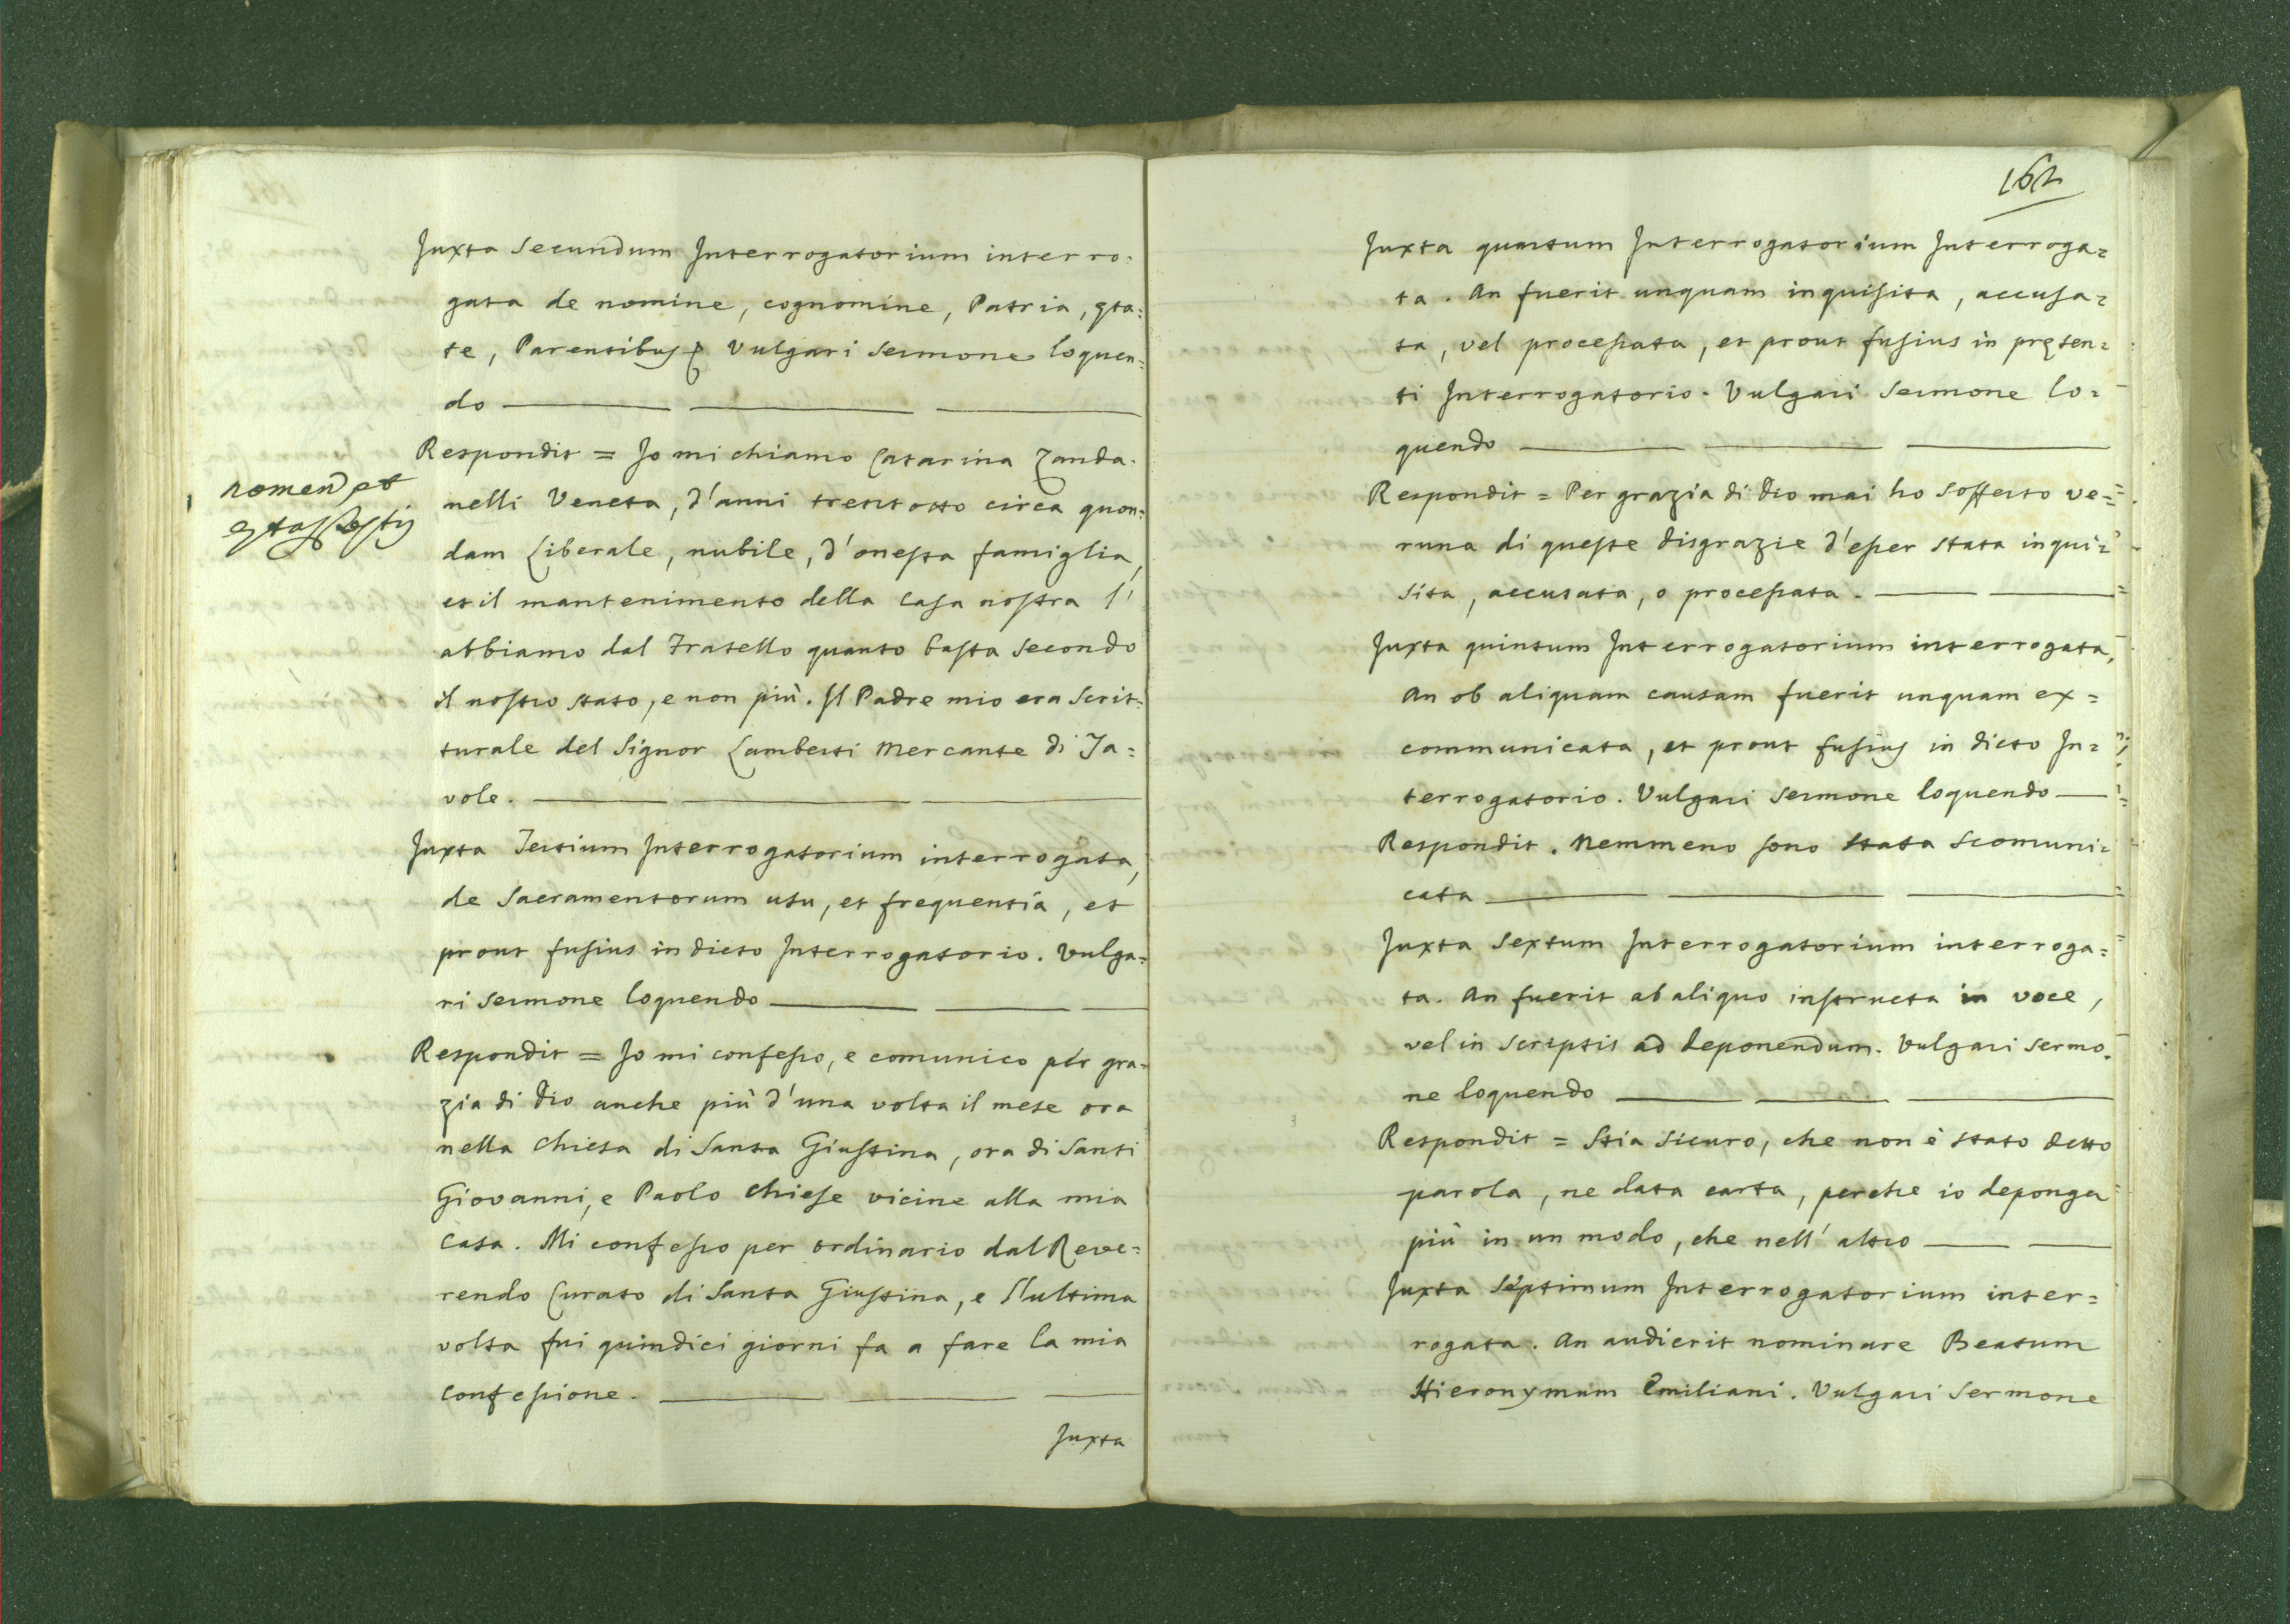 Juxta Secundum Interrogatorium interro=
gata de nomine, cognomine, Patria, ęta=
te, Parentibus &. Vulgari Sermone loquen=
do
nomen et
ętas testis
Respondit = Io mi chiamo Catarina Zanda=
nelli Veneta, d'anni trent'otto circa quon=
dam Liberale, nubile, d'onesta famiglia,
et il mantenimento della Casa nostra l'
abbiamo dal Fratello quanto basta secondo
il nostro stato, e non più. Il Padre mio era Scrit=
turale del Signor Lamberti Mercante di Ta=
vole.
Juxta Tertium Interrogatorium interrogata,
de Sacramentorum usu, et frequentia, et
prout fusius in dicto Interrogatorio. Vulga=
ri Sermone loquendo
Respondit = Io mi confesso, e comunico per gra=
zia di Dio anche più d'una volta il mese ora
nella Chiesa di Santa Giustina, ora di Santi
Giovanni, e Paolo Chiese vicine alla mia
Casa. Mi confesso per ordinario dal Reve=
rendo Curato di Santa Giustina, e l'ultima
volta fui quindici giorni fa a fare la mia
Confessione.
Juxta
162
Juxta quartum Interrogatorium Interroga=
ta. An fuerit unquam inquisita, accusa=
ta, vel processata, et prout fusius in pręsen=
ti Interrogatorio. Vulgari Sermone lo=
quendo
Respondit = Per grazia di Dio mai ho sofferto ve=
runa di queste disgrazie d'esser stata inqui=
sita, accusata, o processata.
Juxta quintum Interrogatorium interrogata,
An ob aliquam causam fuerit unquam ex=
communicata, et prout fusius in dicto In=
terrogatorio. Vulgari Sermone loquendo
Respondit. Nemmeno sono stata scomuni=
cata
Juxta Sextum Interrogatorium interroga=
ta. An fuerit ab aliquo instructa in voce,
vel in Scriptis ad deponendum. Vulgari Sermo=
ne loquendo
Respondit = Stia sicuro, che non è stato detto
parola, ne data carta, perche io deponga
più in un modo, che nell'altro
Juxta Septimum Interrogatorium inter=
rogata. An audierit nominare Beatum
Hieronymum Emiliani. Vulgari Sermone